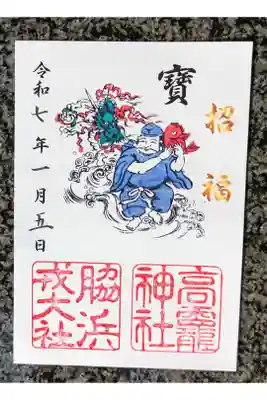 招福
寶
令和七年一月五日
高靇
神社
脇浜
戎大社